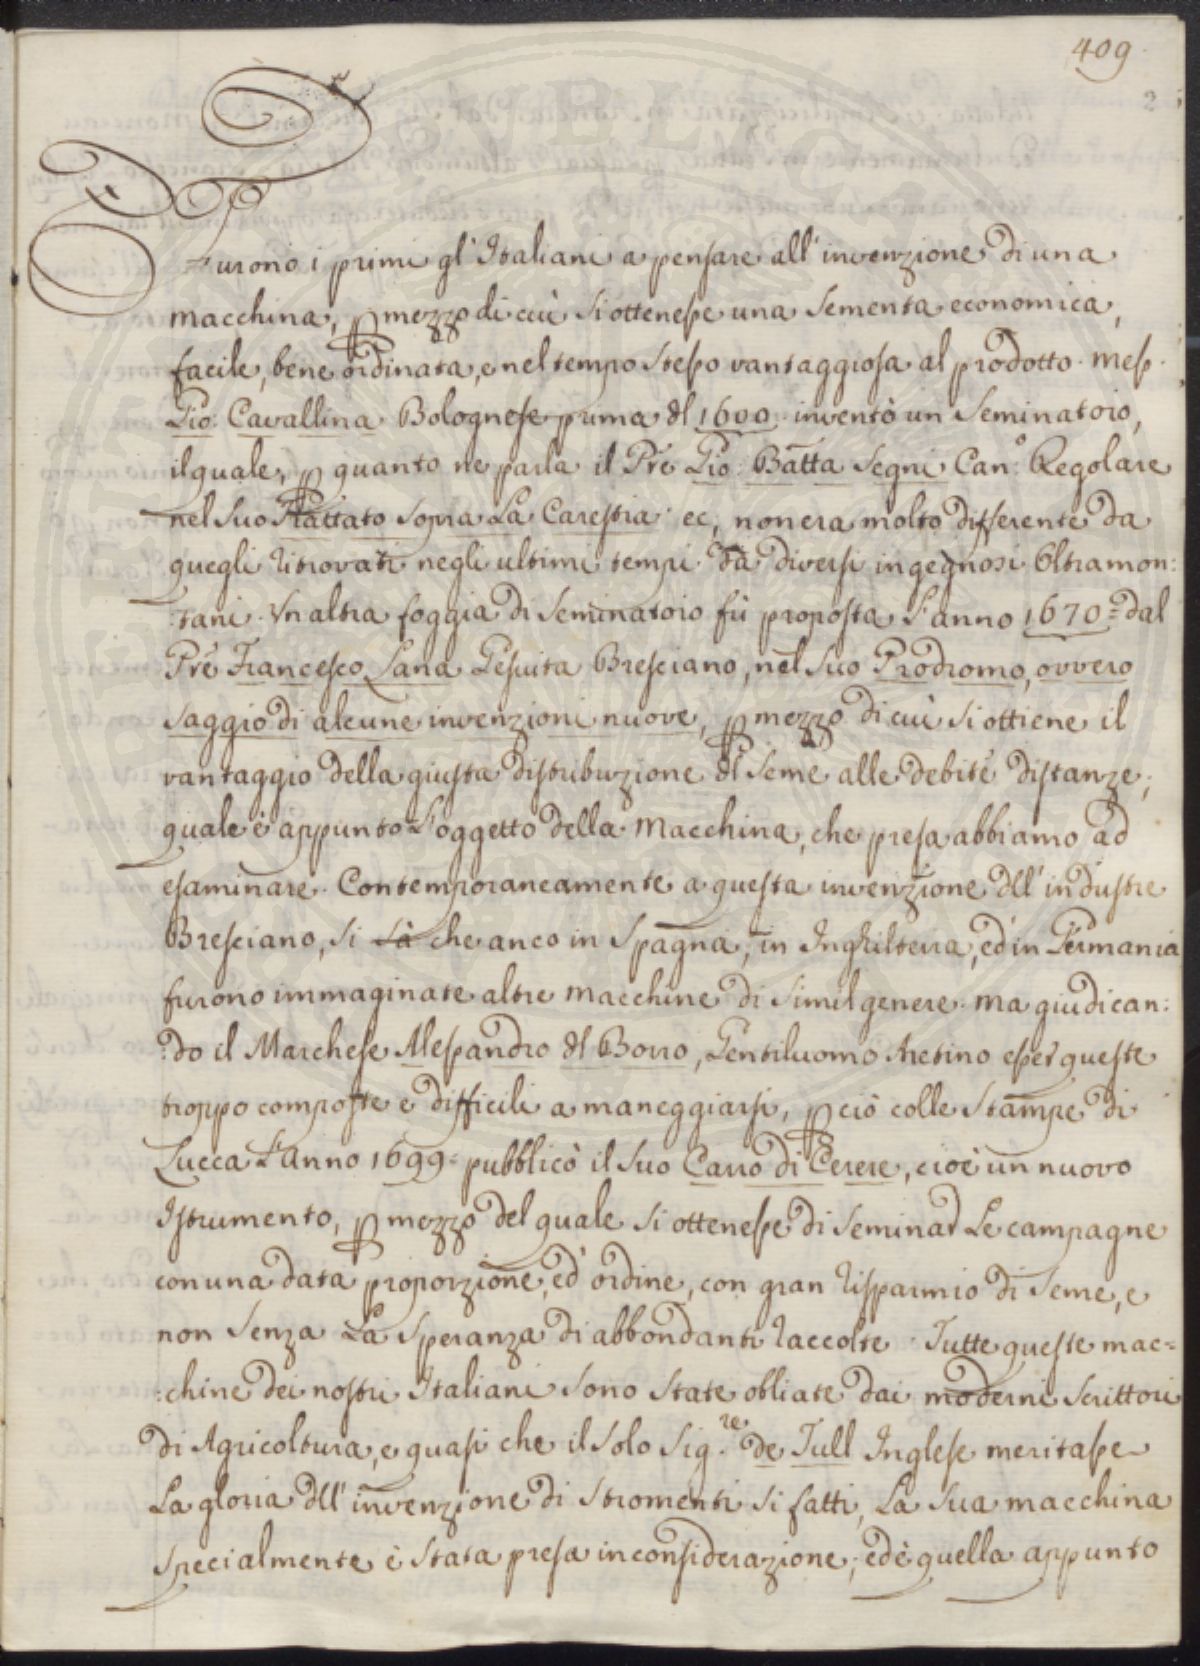 409
2
Furono i primi gl'Italiani a pensare all'invenzione di una
macchina, p mezzo di cui si ottenesse una sementa economica,
facile, bene ordinata, e nel tempo stesso vantaggiosa al prodotto. Mess.
Gio: Cavallina Bolognese prima dl 1600. inventò un Seminatoio,
il quale, p quanto ne parla il Pre Gio: Batta Segni Can:º Regolare
nel suo Trattato sopra La Carestia ec, non era molto differente da
quegli ritrovati negli ultimi tempi da diversi ingegnosi Oltramon:
:tani. Un altra foggia di Seminatoio fù proposta l'anno 1670= dal
Pre Francesco Lana Gesuita Bresciano, nel suo Prodromo, ovvero
saggio di alcune invenzioni nuove, p mezzo di cui si ottiene il
vantaggio della giusta distribuzione dl seme alle debite distanze,
quale è appunto L'oggetto della Macchina, che presa abbiamo ad
esaminare. Contemporaneamente a questa invenzione dll'industre
Bresciano, si sà che anco in Spagna, in Inghilterra, ed in Germania
furono immaginate altre macchine di simil genere. ma giudican:
:do il Marchese Alessandro dl Borro, Gentiluomo Aretino esser queste
troppo composte e difficili a maneggiarsi, pciò colle Stampe di
Lucca L'anno 1699= pubblicò il suo Carro di Cerere, cioè un nuovo
Istrumento, p mezzo del quale si ottenesse di seminar Le campagne
con una data proporzione, ed ordine, con gran risparmio di seme, e
non senza La speranza di abbondanti raccolte. Tutte queste mac=
:chine dei nostri Italiani sono state obliate dai moderni scrittori
di Agricoltura, e quasi che il solo Sig.re de Tull Inglese meritasse
La gloria dll'invenzione di stromenti si fatti, La sua macchina
specialmente è stata presa in considerazione, ed è quella appunto